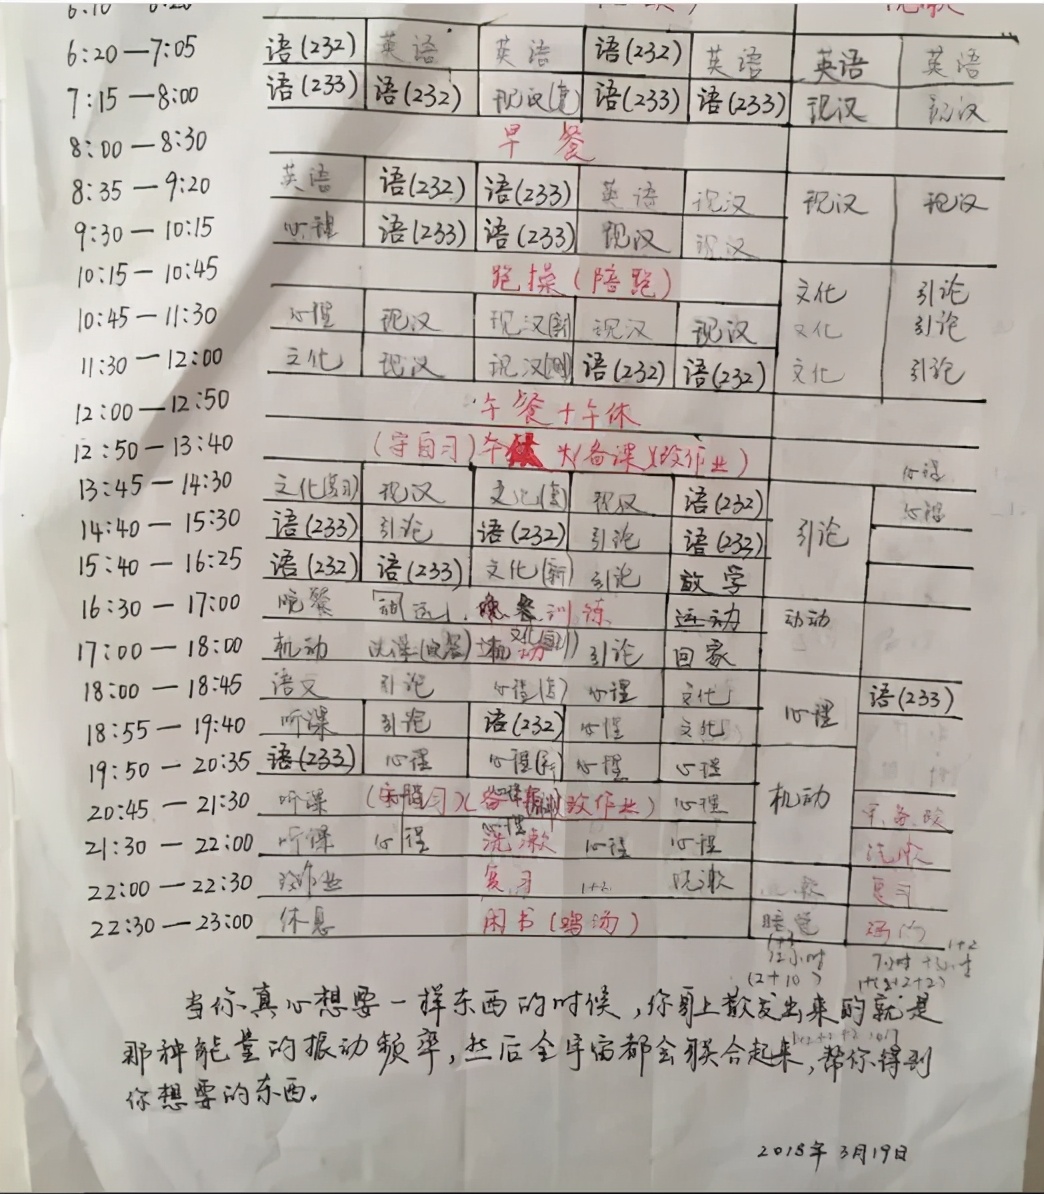 6:20—7:05 语(232) 英语 英语 语(232) 英语 英语 英语
7:15—8:00 语(233) 语(232) 现汉 语(233) 语(233) 现汉 现汉
8:00—8:30 早餐
8:35—9:20 英语 语(232) 语(233) 英语 现汉 现汉 现汉
9:30—10:15 心理 语(233) 语(233) 现汉 现汉
10:15—10:45 跑操(陪跑) 文化 引论
10:45—11:30 心理 现汉 现汉 现汉 现汉 文化 引论
11:30—12:00 文化 现汉 现汉 语(232) 语(232) 文化 引论
12:00—12:50 午餐+午休
12:50—13:40 (守自习) (备课)(改作业) 心理
13:45—14:30 文化 现汉 文化 现汉 语(232) 引论 心理
14:40—15:30 语(233) 引论 语(232) 引论 语(233)
15:40—16:25 语(232) 语(233) 文化(新) 引论 数学
16:30—17:00 晚餐 训练 运动
17:00—18:00 机动 引论 回家
18:00—18:45 语文 引论 心理 心理 文化 心理 语(233)
18:55—19:40 听课 引论 语(232) 心理 文化
19:50—20:35 语(233) 心理 心理 心理 心理 机动
20:45—21:30 听课 改作业) 心理
21:30—22:00 听课 心理 洗漱 心理 心理 洗漱
22:00—22:30 改作业 复习 1+2 洗漱 复习
22:30—23:00 休息 闲书(鸡汤) 睡觉
12小时
(2+10)
当你真心想要一样东西的时候,你身上散发出来的就是
那种能量的振动频率,然后全宇宙都会联合起来,帮你得到
你想要的东西。
2018年3月19日